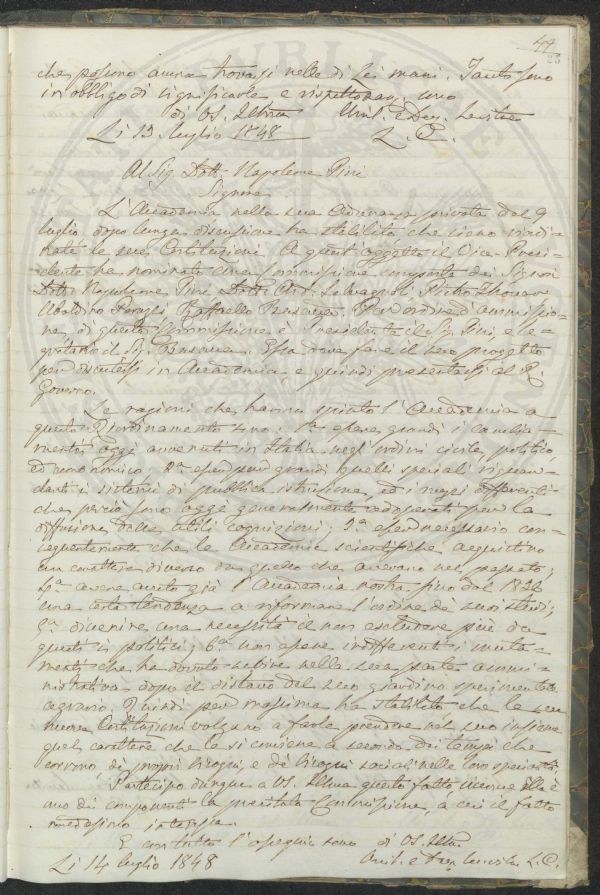 44
23
che possono ancora trovarsi nelle di Lei mani. Tanto sono
in obbligo di significarle e rispettosam. sono
di VS. Illma Uml. e Dev. Servitore
Li 13 luglio 1848 L. C.
Al Sig. Dott. Napoleone Pini
Signore
L'Accademia nella sua Adunanza privata del 9
luglio dopo lunga discussione ha stabilito che siano rior-di-
nate le sue Costituzioni. A quest'oggetto il Vice-Presi-
dente ha nominato una Commissione composta dei Signori
Dott. Napoleone Pini Dott. Ant. Pietro Thouar
Ubaldino Peruzzi Raffaello Busacca.
ne, di questa Commissione è Presidente il Sig. Pini, e Se-
gretario il Sig. Busacca. Essa deve fare il suo progetto
per discutersi in Accademia e quindi presentarsi al R.
Governo.
Le ragioni che hanno spinto l'Accademia a
questo Riordinamento sono: 1.ª essere grandi i cambia-
menti oggi avvenuti in Italia negl'ordini civile, politico,
ed economico; 2.ª esser pur grandi quelli speciali riguar-
danti i sistemi di pubblica istruzione, ed i mezzi differenti
che perciò sono oggi generalmente adoperati per la
diffusione delle utili cognizioni; 3.ª esser necessario con-
seguentemente che le Accademie scientifiche acquistino
un carattere diverso da quello che avevano nel passato;
4.ª avere avuto già l'Accademia nostra fino dal 18
una certa tendenza a riformare l'ordine de' suoi studi;
5.ª divenire una necessità il non escludere più da
questi i politici; 6.ª non essere indifferenti i muta-
menti che ha dovuto subire nella sua parte ammi-
nistrativa dopo il distacco del suo giardino sperimentale
agrario. Quindi per massima ha stabilito che le sue
nuove Costituzioni valgano a farle prendere nel suo insieme
quel carattere che le si conviene a seconda dei tempi che
corrono dei propri bisogni, e de' bisogni sociali nelle loro specialità.
Partecipo dunque a VS. Illma questo fatto siccome Ella è
uno dei componenti la prelodata Commissione, a cui il fatto
medesimo interessa.
E con tutto l'ossequio sono di VS. Illma
Li 14 luglio 1848 Umil. e Dev. Servitore L. C.